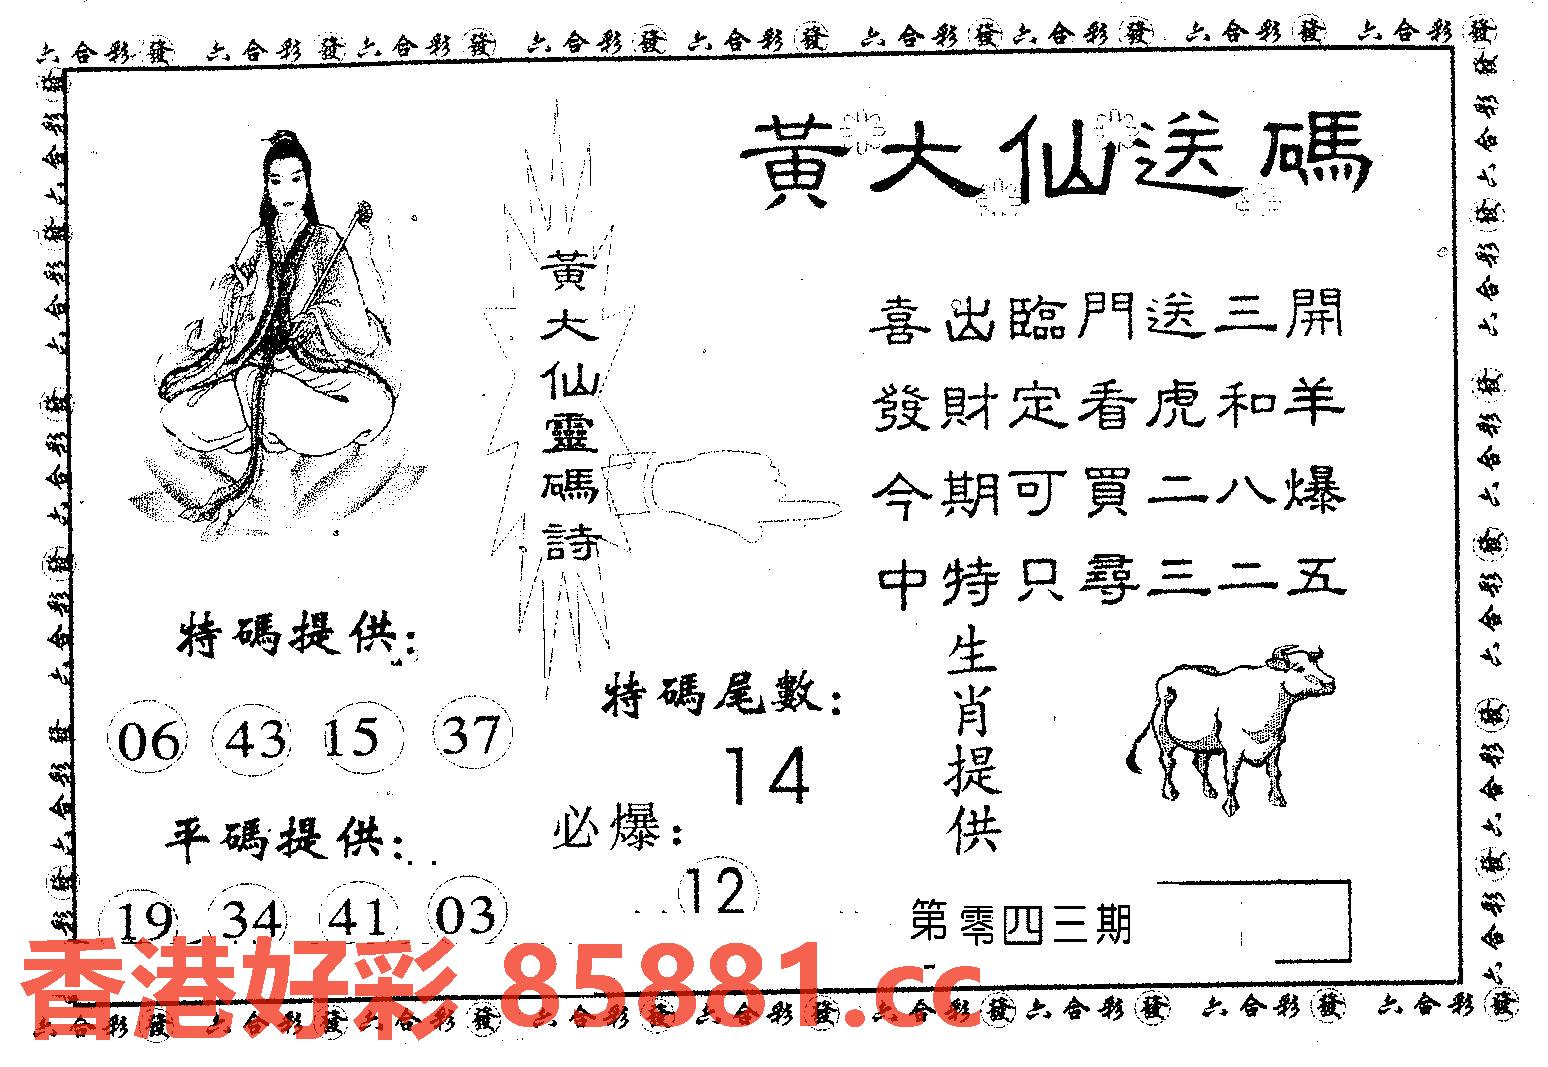 六合彩發 六合彩發六合彩發 六合彩發 六合彩發 六合彩發六合彩發 六合彩發 六合彩發
黃大仙送碼
黃大仙靈碼詩
喜出臨門送三開
發財定看虎和羊
今期可買二八爆
中特只尋三二五
特碼提供:
06 43 15 37
平碼提供:
19 34 41 03
特碼尾數:
14
必爆:
12
生肖提供
第零四三期
香港好彩 85881.cc
六合彩發 六合彩發六合彩發 六合彩發 六合彩發 六合彩發六合彩發 六合彩發 六合彩發